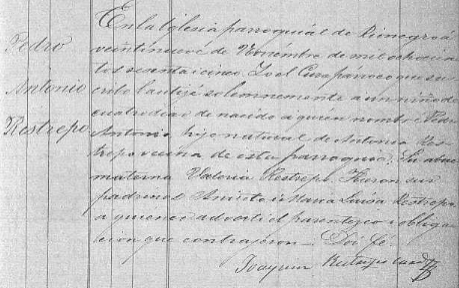 Pedro
Antonio
Restrepo
En la Iglesia parroquial de Rionegro á
veintinueve de Noviembre de mil ochocien
tos sesenta i cinco Yo el Cura parroco que sus
cribo bautizé solemnemente á un niño de
cuatro dias de nacido a quien nombré Pedro
Antonio hijo natural de Antonia Res
trepo vecina de esta parroquia. Su abue
materna Valeria Restrepo. Fueron sus
padrinos Aniceto i Maria Luisa Restrepo
a quienes advertí el parentezco i obliga
cion que contrajeron — Doi fe.
Joaquin Restrepo